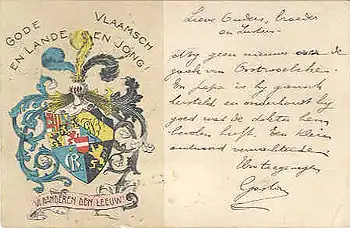 GODE VLAAMSCH
EN LANDE EN JONG!
VLAANDEREN DEN LEEUW!
Lieve Ouders, broeder
en Zusters.
Nog geen nieuws over de
zaak van
En papa is hij gansch
hersteld en onderhoudt hij
goed wat de dokter hem
bevolen heeft. Een klein
antwoord verwachtende